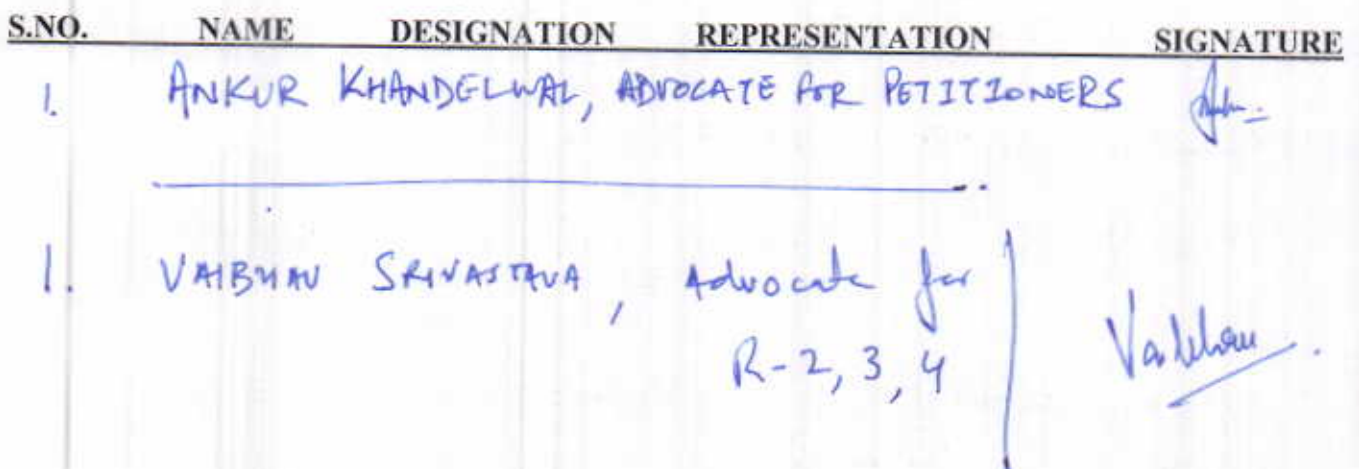 S.NO. NAME DESIGNATION REPRESENTATION SIGNATURE
1. ANKUR KHANDELWAL, ADVOCATE FOR PETITIONERS
1. VAIBHAV SRIVASTAVA, Advocate for
R-2, 3, 4
Vaibhav